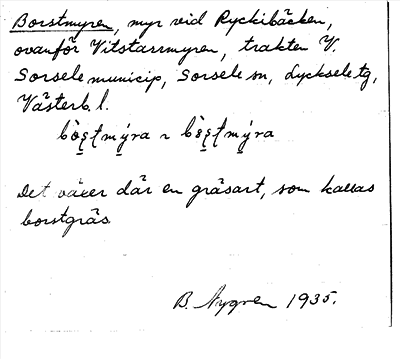 Borstmyren, myr vid Ryckibäcken,
ovanför Vitstarrmyren, trakten V.
Sorsele municip, Sorsele sn, Lycksele tg,
Västerb l.
mýra ~ mýra
Det växer där en gräsart, som kallas
borstgräs
B. Nygren 1935.